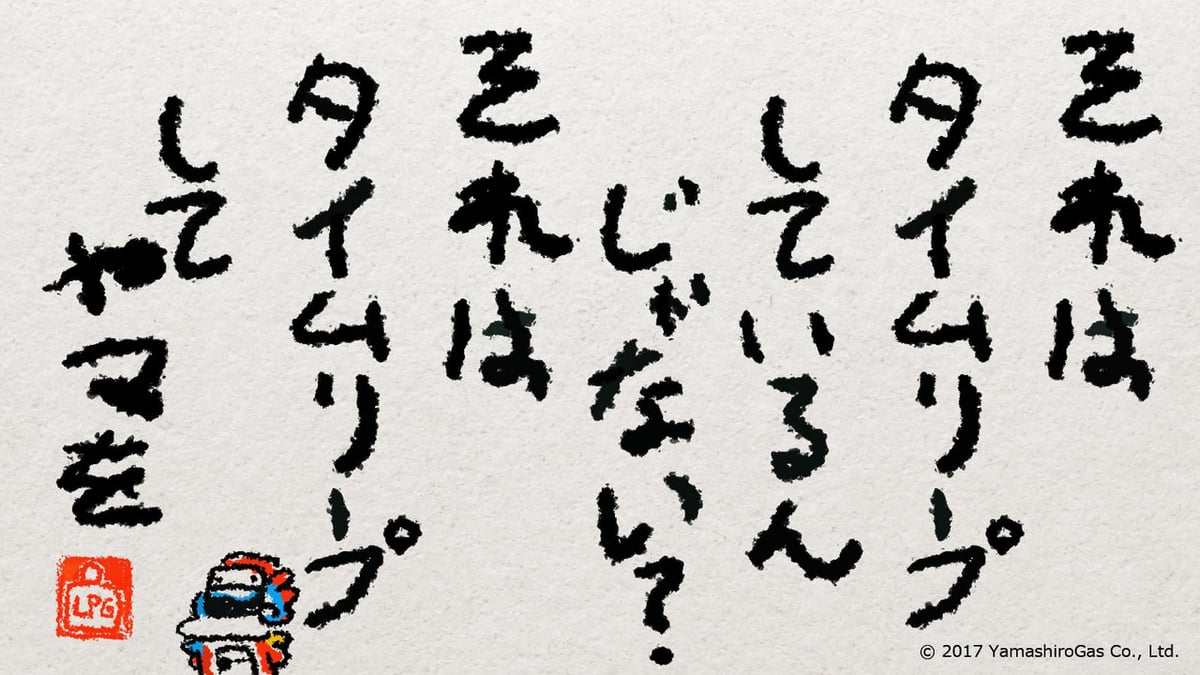 それは
タイムリープ
しているん
じゃない?
それは
タイムリープ
して
LPG
© 2017 YamashiroGas Co., Ltd.